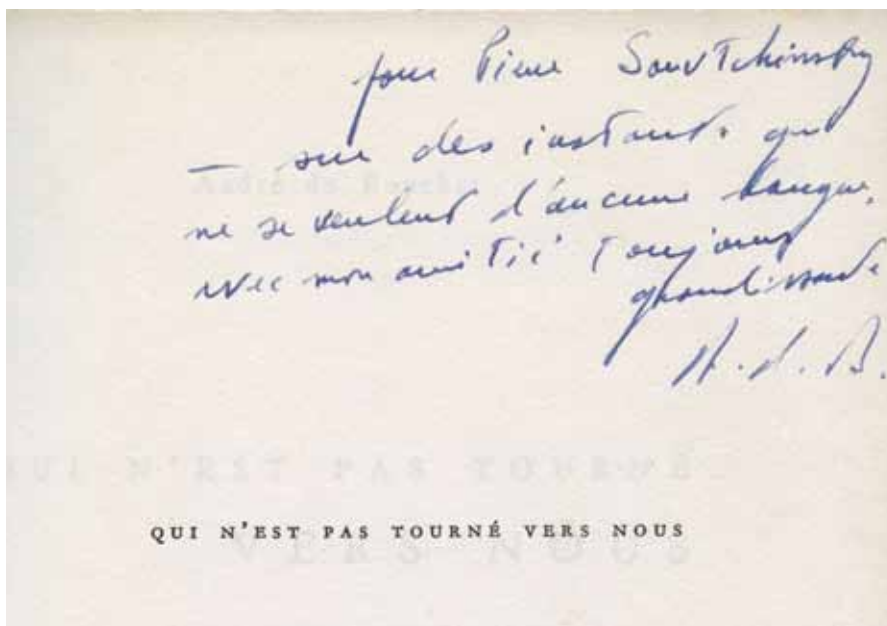 pour Pierre Souvtchinsky
— sur des instants qui
ne se veulent d'aucune langue,
avec mon amitié toujours
grandissante
A. d. B.
André du Bouchet
QUI N'EST PAS TOURNÉ
VERS NOUS
QUI N'EST PAS TOURNÉ VERS NOUS